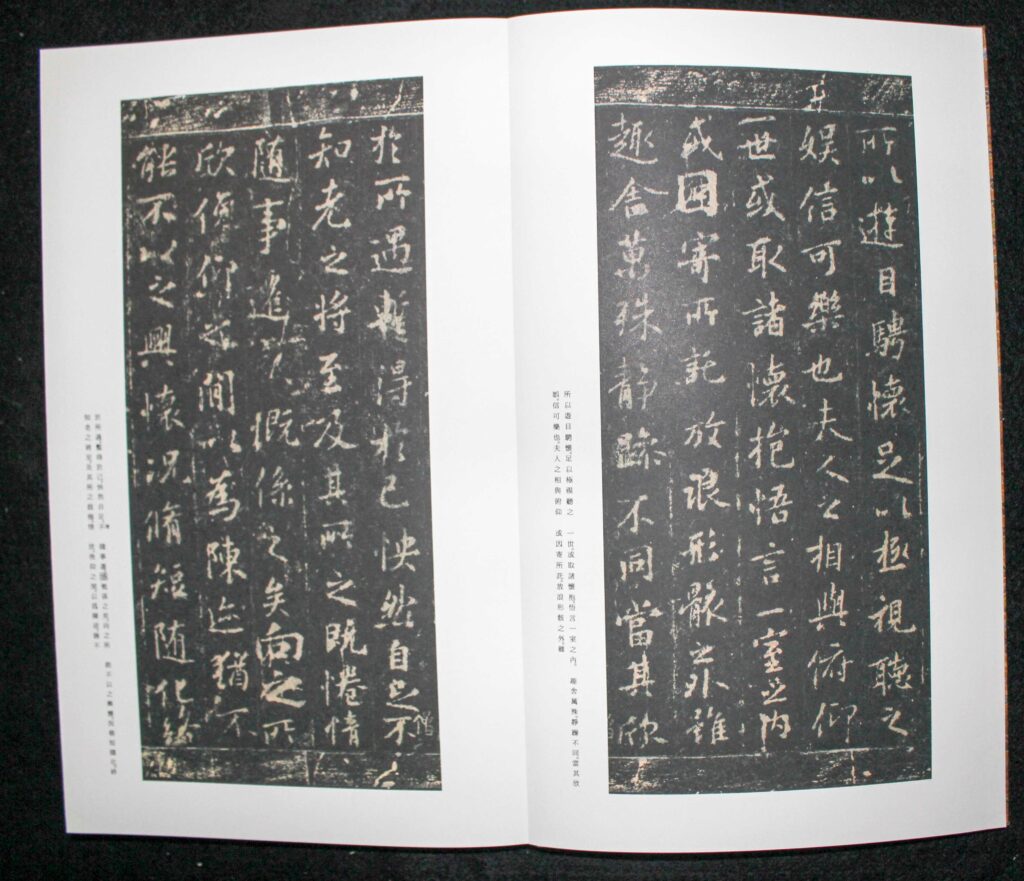 所以遊目騁懷足以極視聽之
娛信可樂也夫人之相與俯仰
一世或取諸懷抱悟言一室之內
或因寄所託放浪形骸之外雖
趣舍萬殊靜躁不同當其欣
所以遊目騁懷、足以極視聽之 一世、或取諸懷抱、悟言一室之內、 趣舍萬殊、靜躁不同、當其欣
娛、信可樂也、夫人之相與俯仰 或因寄所託、放浪形骸之外、雖
於所遇暫得於己怏然自足不
僧
知老之將至及其所之既惓情
隨事遷慨係之矣向之所
欣俛仰之閒以為陳迹猶不
能不以之興懷況脩短隨化終
於所遇、暫得於己、怏然自足、不 隨事遷、感慨係之矣、向之所 能不以之興懷、況脩短隨化、終
知老之將至、及其所之既惓、情 欣、俛仰之閒、以爲陳迹、猶不